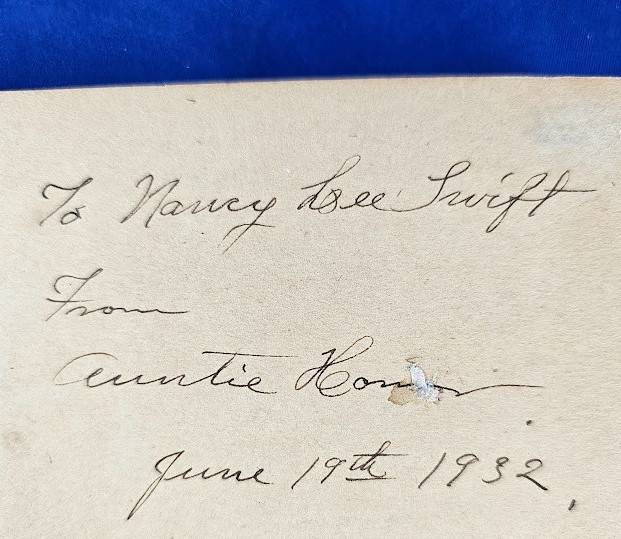 To Nancy Lee Swift
From
Auntie
June 19th 1932.